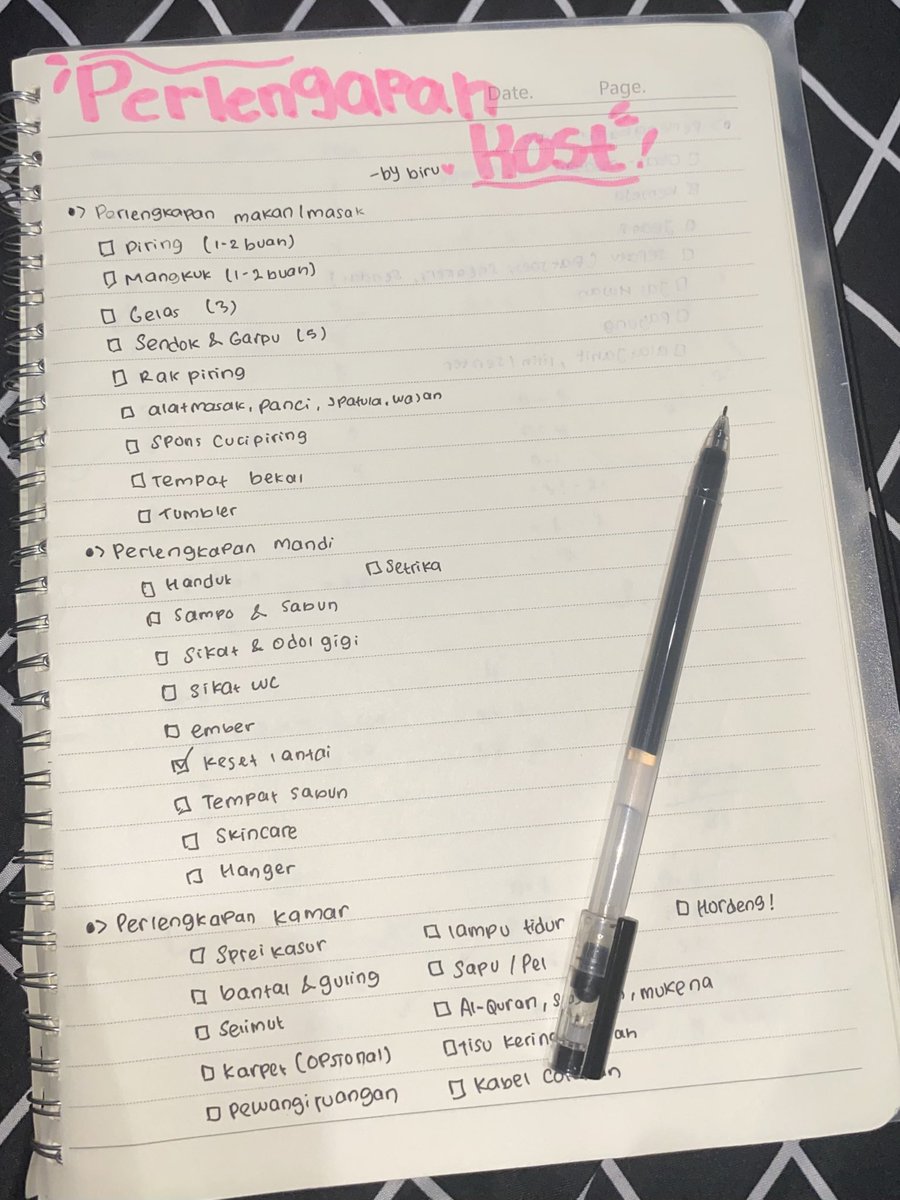 Perlengapan
Date. Page.
Kost!
-by biru
Perlengkapan makan/masak
Piring (1-2 buah)
Mangkuk (1-2 buah)
Gelas (3)
Sendok & Garpu (5)
Rak piring
alat masak, panci, spatula, wajan
Spons cuci piring
Tempat bekal
Tumbler
Perlengkapan mandi
Handuk
Setrika
Sampo & Sabun
Sikat & Odol gigi
Sikat WC
ember
Keset lantai
Tempat sabun
Skincare
Hanger
Perlengkapan kamar
Sprei kasur
bantal & guling
Selimut
Karpet (OPSIONAL)
Pewangi ruangan
lampu tidur
Sapu / Pel
Al-Quran, mukena
tisu kering
Kabel
Hordeng!